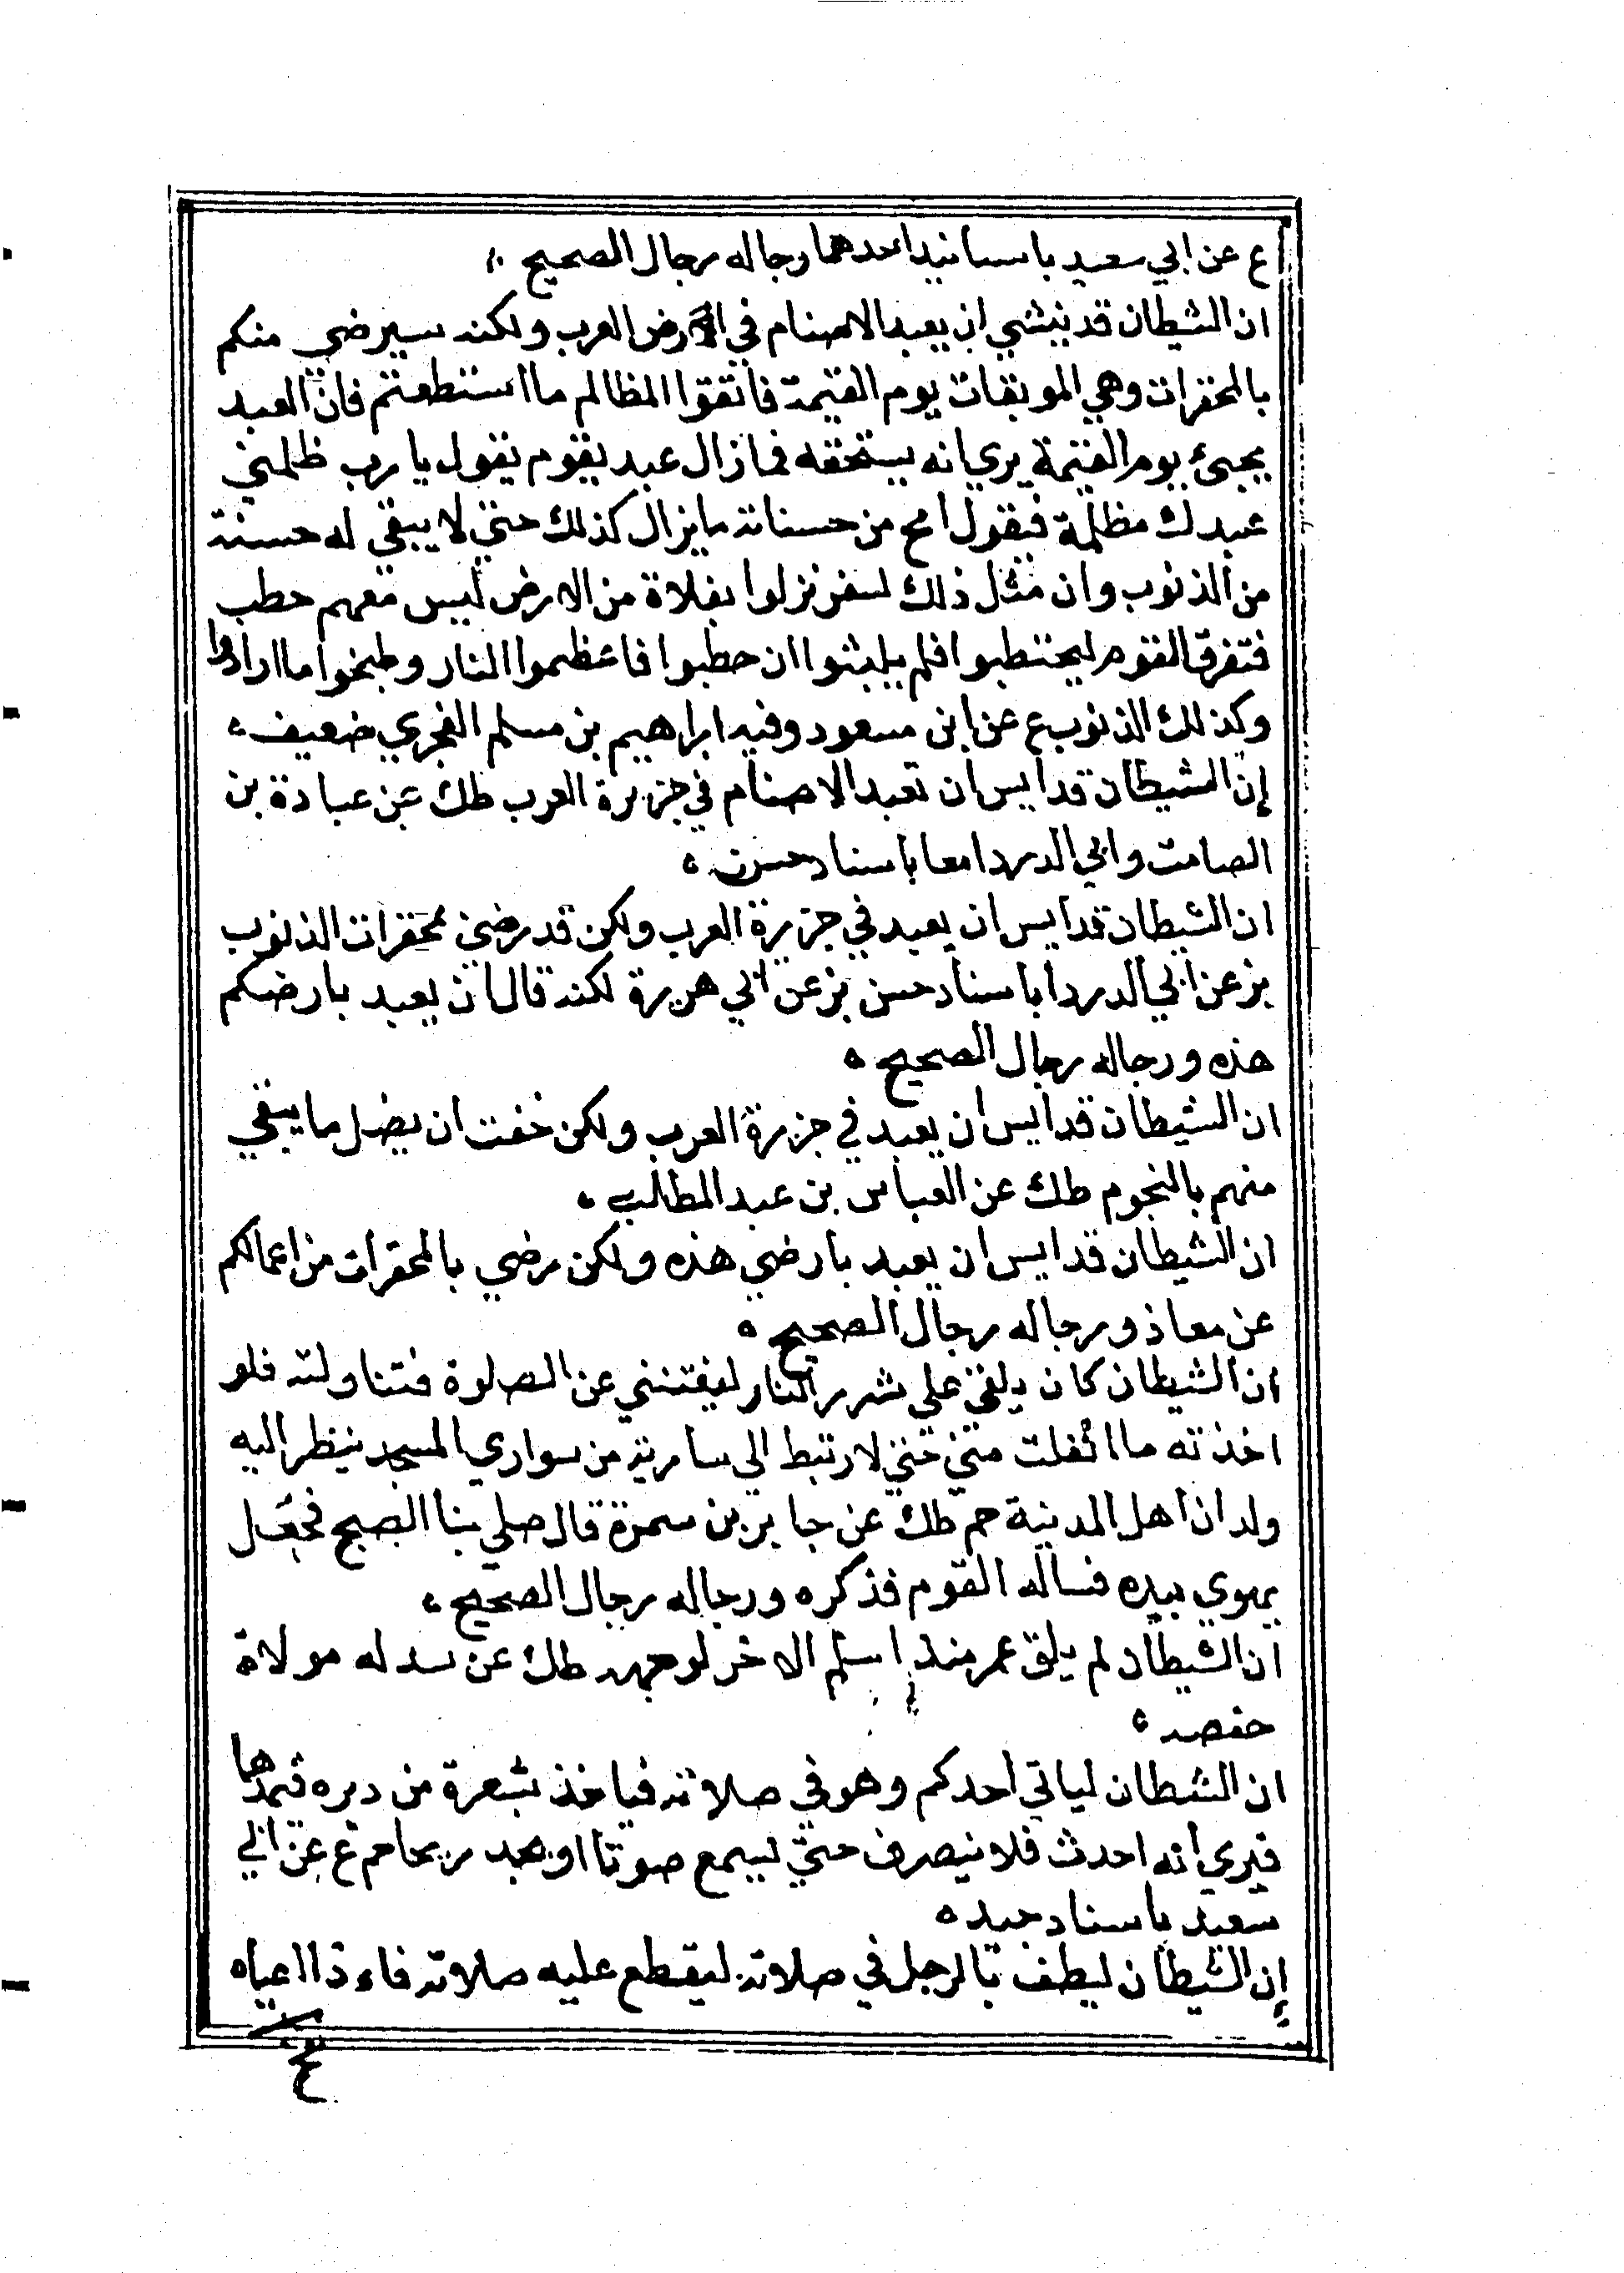 ع عن ابي سعيد باسانيد احدهما رجاله رجال الصحيح
ان الشيطان قد ييئس ان يعبد الاصنام في ارض العرب ولكنه سيرضي منكم
بالمحقرات وهي الموبقات يوم القيمة فاتقوا المظالم ما استطعتم فان العبد
يجيئ يوم القيمة يري انه يستحقه فما زال عبد يقوم يقول يا رب ظلمني
عبدك مظلمة فيقول امح من حسناته ما يزال كذلك حتي لا يبقي له حسنة
من الذنوب وان مثل ذلك لسفر نزلوا بفلاة من الارض ليس معهم حطب
فتفرق القوم ليحتطبوا فلم يلبثوا ان حطبوا فاعظموا النار وطبخوا ما ارادوا
وكذلك الذنوب ع عن ابن مسعود وفيه ابراهيم بن مسلم الفجري ضعيف
إن الشيطان قد ايس ان تعبد الاصنام في جزيرة العرب طك عن عبادة بن
الصامت وابي الدردا معا باسناد حسن
ان الشيطان قد ايس ان يعبد في جزيرة العرب ولكن قد رضي بمحقرات الذنوب
بز عن ابي الدردا باسناد حسن بز عن ابي هريرة لكنه قال ان يعبد بارضكم
هذه ورجاله رجال الصحيح
ان الشيطان قد ايس ان يعبد في جزيرة العرب ولكن خفت ان يضل ما يبقي
منهم بالنجوم طك عن العباس بن عبد المطلب
ان الشيطان قد ايس ان يعبد بارضي هذه ولكن رضي بالمحقرات من اعمالكم
عن معاذ ورجاله رجال الصحيح
ان الشيطان كان يلقي علي شرر النار ليفتنني عن الصلوة فتناولته فلو
اخذته ما انفلت مني حتي لارتبط الي سارية من سواري المسجد ينظر اليه
ولدان اهل المدينة حم طك عن جابر بن سمرة قال صلي بنا الصبح فجعل
يهوي بيده فساله القوم فذكره ورجاله رجال الصحيح
ان الشيطان لم يلق عمر منذ اسلم الا خر لوجهه طك عن سدله مولاة
حفصه
ان الشيطان لياتي احدكم وهو في صلاته فياخذ بشعرة من دبره فيمدها
فيري انه احدث فلا ينصرف حتي يسمع صوتا او يجد ريحا حم ع عن ابي
سعيد باسناد جيد
إن الشيطان ليطف بالرجل في صلاته ليقطع عليه صلاته فاء ذا اعياه